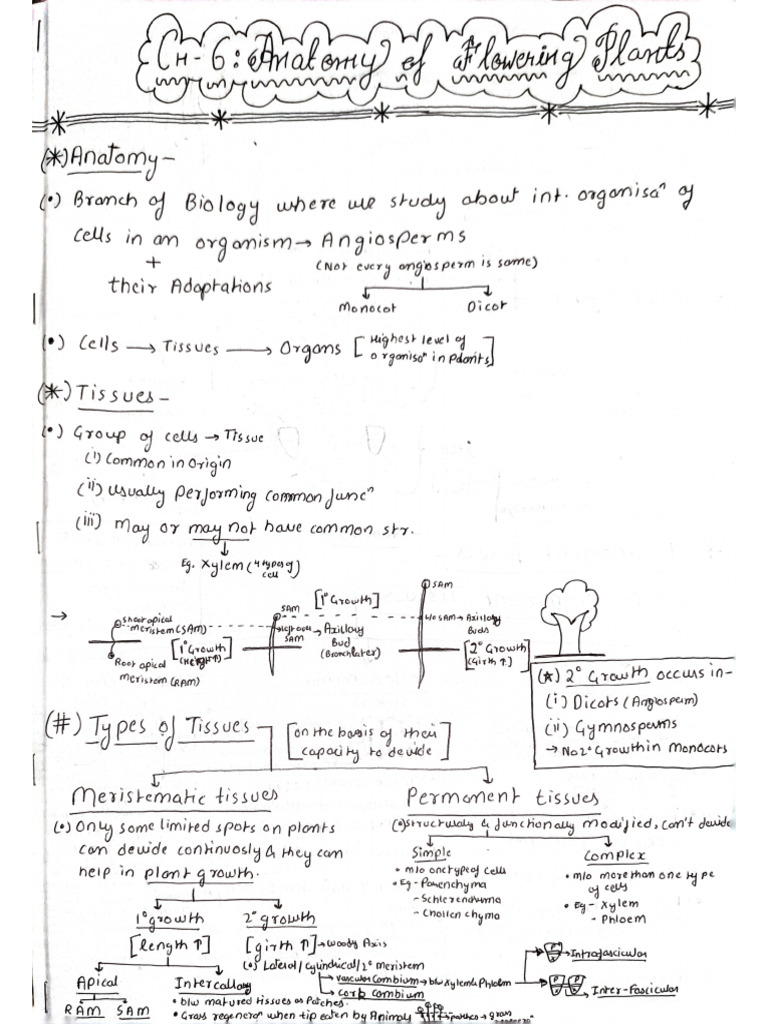 CH-6: Anatomy of Flowering Plants
(*) Anatomy -
(•) Branch of Biology where we study about int. organisaⁿ of
cells in an organism → Angiosperms
+
(Not every angiosperm is same)
their Adaptations
Monocot Dicot
(•) Cells → Tissues → Organs [Highest level of
organisaⁿ in plants]
(*) Tissues -
(•) Group of cells → Tissue
(i) Common in Origin
(ii) Usually performing common funcⁿ
(iii) May or may not have common str.
Eg. Xylem (4 types of
cell)
→ Shoot apical
meristem (SAM)
Root apical
meristem (RAM)
[1° Growth
(Height↑)]
SAM
[1° Growth]
SAM → Axillary
Bud
(Branch later)
SAM
SAM → Axillary
Buds
[2° Growth
(Girth↑)]
(*) 2° Growth occurs in-
(i) Dicots (Angiosperm)
(ii) Gymnosperms
→ No 2° Growth in Monocots
(#) Types of Tissues - [on the basis of their
capacity to devide]
Meristematic tissues
(•) Only some limited spots on plants
can devide continuosly & they can
help in plant growth.
1° growth 2° growth
[length↑] [girth↑] → Woody Axis
(•) Lateral / Cylindrical / 2° meristem
→ Vascular Cambium → b/w Xylem & Phloem
→ Cork Cambium
Intrafascicular
Inter-Fascicular
Apical Intercallary
RAM SAM
• b/w matured tissues as Patches.
• Grass regeneraⁿ when tip eaten by Animals
patches → grass
Permanent tissues
(•) Structuraly & functionally modified, can't devide
Simple
• m/o one type of cells
• Eg - Parenchyma
- Schlerenchyma
- Chollenchyma
Complex
• m/o more than one type
of cells
• Eg - Xylem
- Phloem